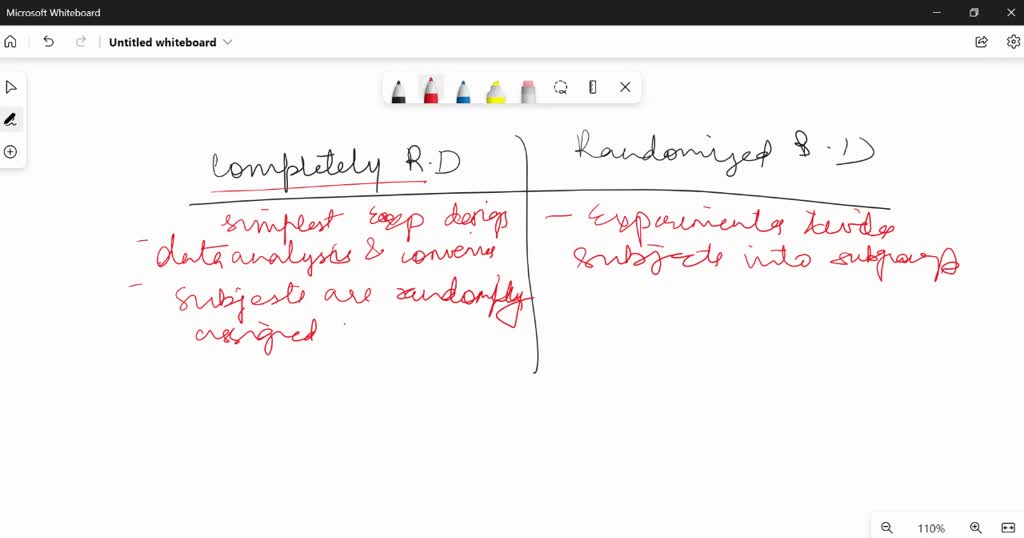 Microsoft Whiteboard
Untitled whiteboard
Completely R.D
Randomized B.D
simplest exp design
- data analysis &
- subjects are randomly
assigned
- Experimenter
subjects into subgroups
110%